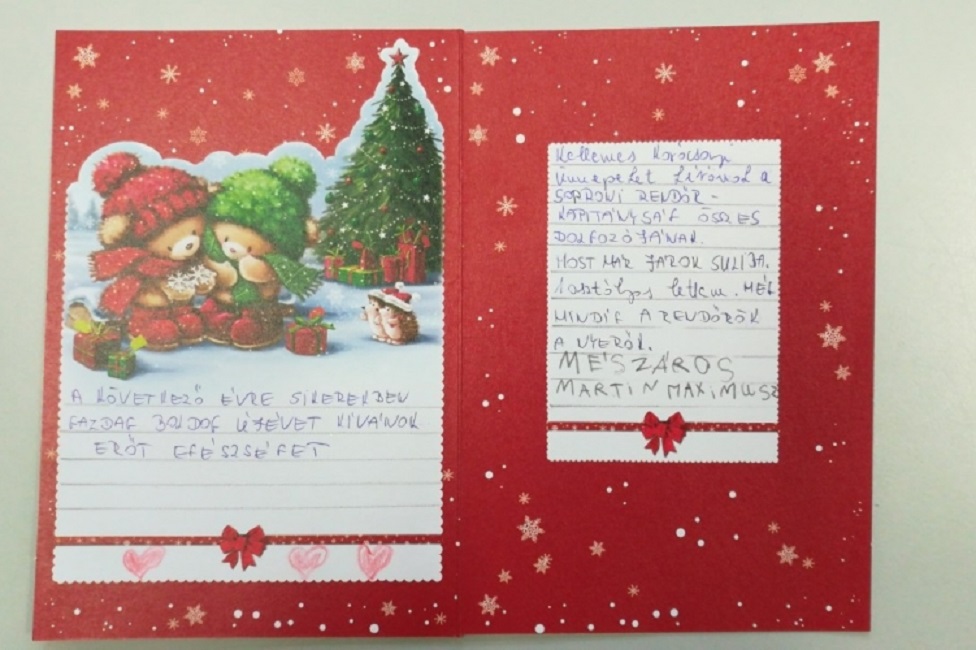 A KÖVETKEZŐ ÉVRE SIKEREKBEN
GAZDAG BOLDOG ÚJÉVET KIVÁNOK
ERŐT EGÉSZSÉGET
Kellemes Karácsonyi
ünnepeket kívánok a
SOPRONI RENDŐR-
KAPITÁNYSÁG ÖSSZES
DOLGOZÓJÁNAK.
MOST MÁR JÁROK SULIBA.
1 osztályos lettem. MÉG
MINDIG A RENDŐRÖK
A NYERŐK.
MÉSZÁROS
MARTIN MAXIMUSZ